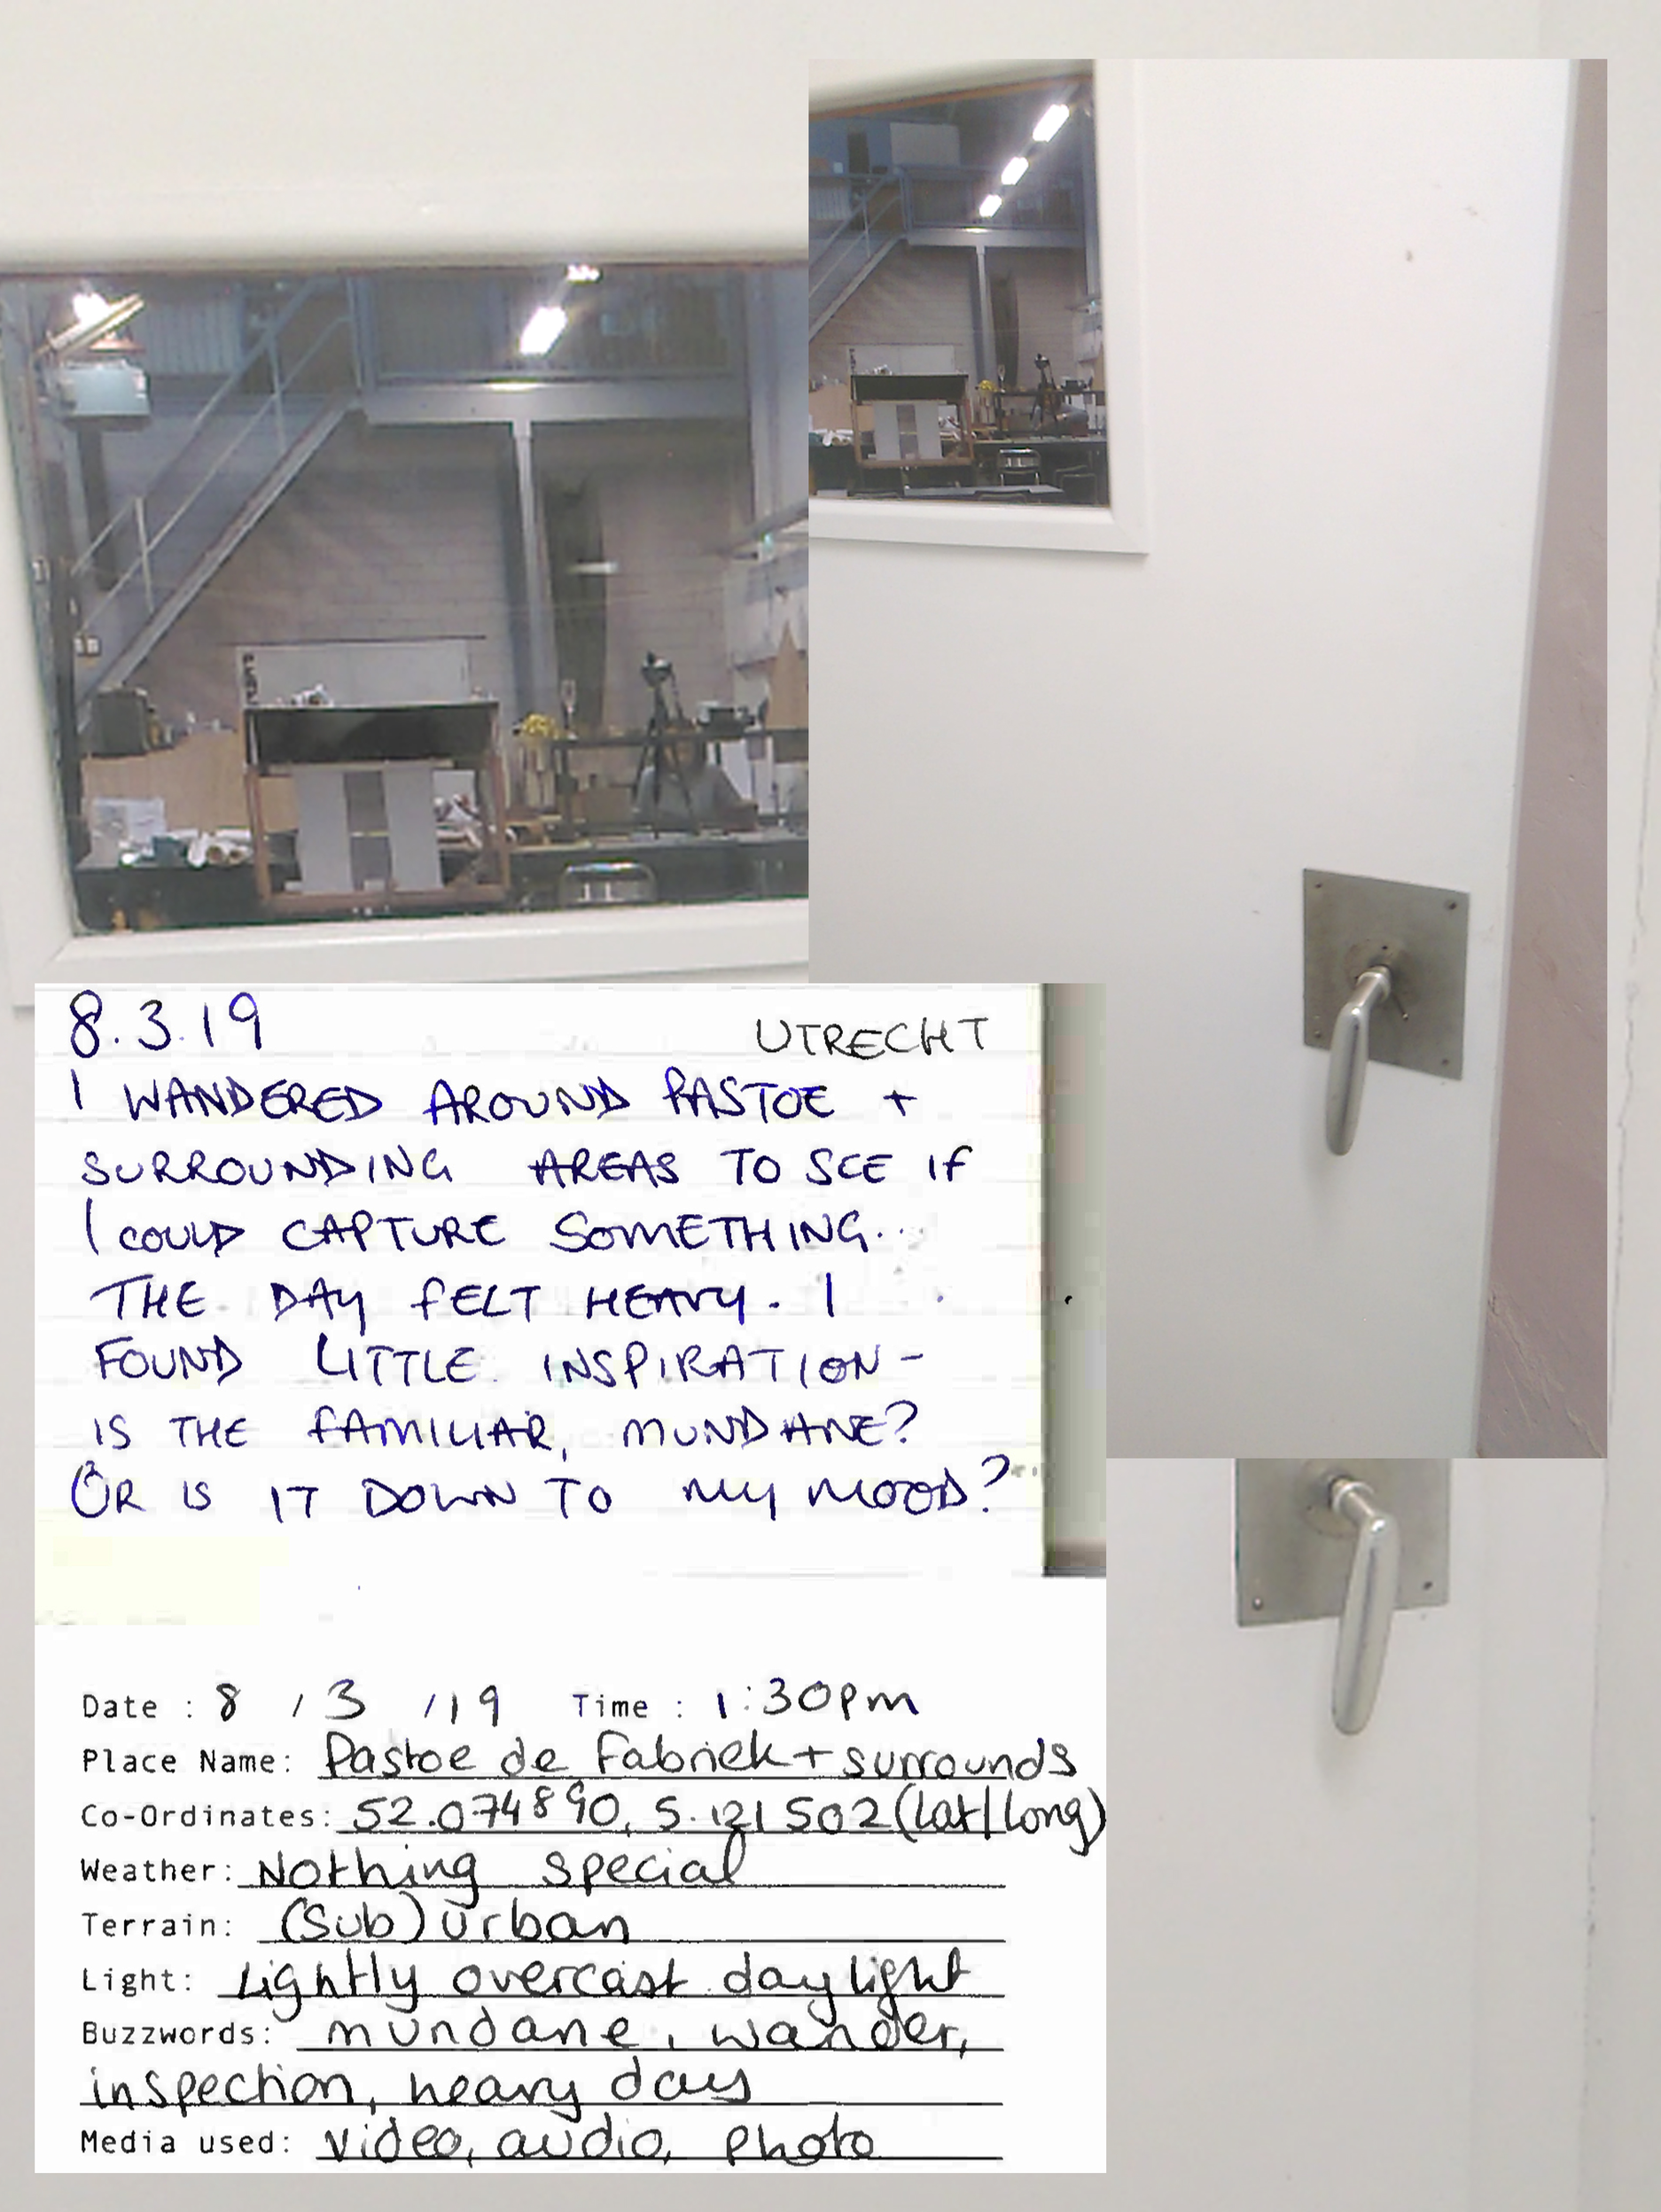 8.3.19 UTRECHT
I WANDERED AROUND PASTOE +
SURROUNDING AREAS TO SEE IF
I COULD CAPTURE SOMETHING...
THE DAY FELT HEAVY. I
FOUND LITTLE INSPIRATION -
IS THE FAMILIAR, MUNDANE?
OR IS IT DOWN TO MY MOOD?
Date : 8 / 3 / 19 Time : 1:30pm
Place Name: Pastoe de Fabriek + surrounds
Co-Ordinates: 52.074890, 5.121502 (lat/long)
Weather: Nothing special
Terrain: (Sub)urban
Light: Lightly overcast daylight
Buzzwords: mundane, wander,
inspection, heavy days
Media used: video, audio, photo